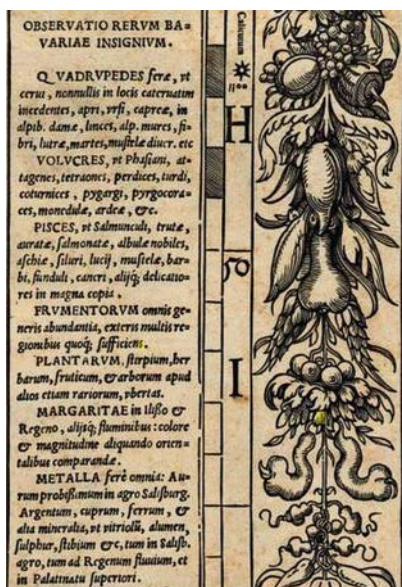 OBSERVATIO RERVM BA-
VARIAE INSIGNIVM.
QVADRVPEDES feræ, vt
cerui, nonnullis in locis cateruatim
incedentes, apri, vrsi, capreæ, in
alpib. damæ, linces, alp. mures, fi-
bri, lutræ, martes, mustelæ diuer. etc
VOLVCRES, vt Phasiani, at-
tagenes, tetraones, perdices, turdi,
coturnices, pygargi, pyrgocora-
ces, monedulæ, ardeæ, &c.
PISCES, vt Salmunculi, trutæ,
auratæ, salmonatæ, albulæ nobiles,
aschiæ, siluri, lucij, mustelæ, bar-
bi, funduli, cancri, alijq; delicatio-
res in magna copia.
FRVMENTORVM omnis ge-
neris abundantia, exteris multis re-
gionibus quoq; sufficiens.
PLANTARVM, stirpium, her
barum, fruticum, & arborum apud
alios etiam rariorum, vbertas.
MARGARITAE in Ilßo &
Regeno, alijsq; fluminibus: colore
& magnitudine aliquando orien-
talibus comparandæ.
METALLA ferè omnia: Au-
rum probißimum in agro Salisburg.
Argentum, cuprum, ferrum, &
alia mineralia, vt vitriolũ, alumen,
sulphur, stibium &c, tum in Salisb.
agro, tum ad Regenum fluuium, et
in Palatinatu superiori.
H
50
I